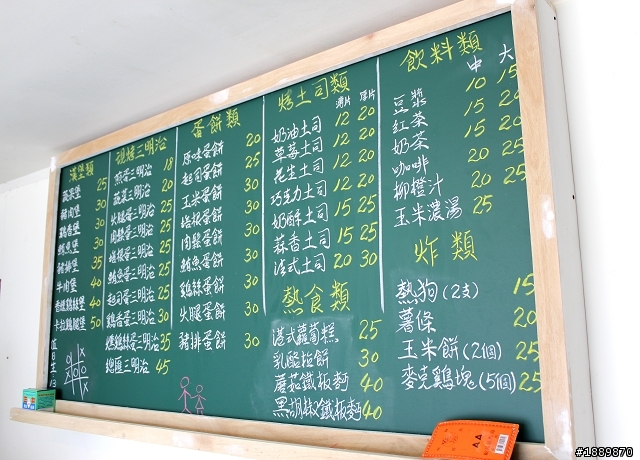 漢堡類
蔬菜堡 25
豬肉堡 30
雞香堡 30
鮪魚堡 30
豬排堡 35
牛肉堡 40
香雞堡 40
卡拉雞腿堡 50
燒烤三明治
煎蛋三明治 18
蔬菜三明治 20
火腿蛋三明治 25
肉鬆蛋三明治 25
燻雞蛋三明治 25
鮪魚蛋三明治 25
起司蛋三明治 25
雞香蛋三明治 30
燻雞絲蛋三明治 35
總匯三明治 45
蛋餅類
原味蛋餅 20
起司蛋餅 25
玉米蛋餅 30
培根蛋餅 30
肉鬆蛋餅 30
鮪魚蛋餅 30
雞絲蛋餅 30
火腿蛋餅 30
豬排蛋餅 30
烤土司類
薄片 厚片
奶油土司 12 20
草莓土司 12 20
花生土司 12 20
巧克力土司 12 20
奶酥土司 15 25
蒜香土司 15 25
法式土司 20 30
熱食類
港式蘿蔔糕 25
乳酪粒餅 30
蘑菇鐵板麵 40
黑胡椒鐵板麵 40
飲料類
中 大
豆漿 10 15
紅茶 15 20
奶茶 15 20
咖啡 20 25
柳橙汁 20 25
玉米濃湯 25
炸類
熱狗(2支) 15
薯條 20
玉米餅(2個) 25
麥克雞塊(5個) 25
#1889870